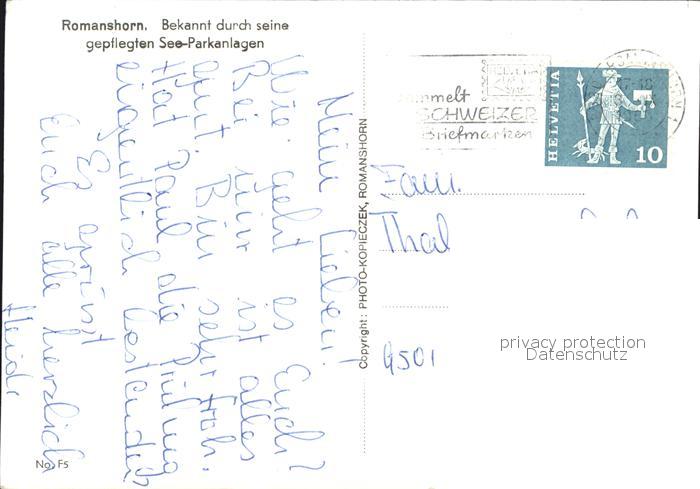 Romanshorn. Bekannt durch seine
gepflegten See-Parkanlagen
Meine Lieben!
Wie geht es Euch?
Bei mir ist alles
gut. Bin sehr froh.
Hat Paul die Prüfung
eigentlich bestanden?
Es grüsst
Euch alle herzlich
Heidi
No. F5
Copyright: PHOTO-KOPIECZEK, ROMANSHORN
HELVETIA
sammelt
SCHWEIZER
Briefmarken
HELVETIA
10
Fam.
Thal
9501
privacy protection
Datenschutz